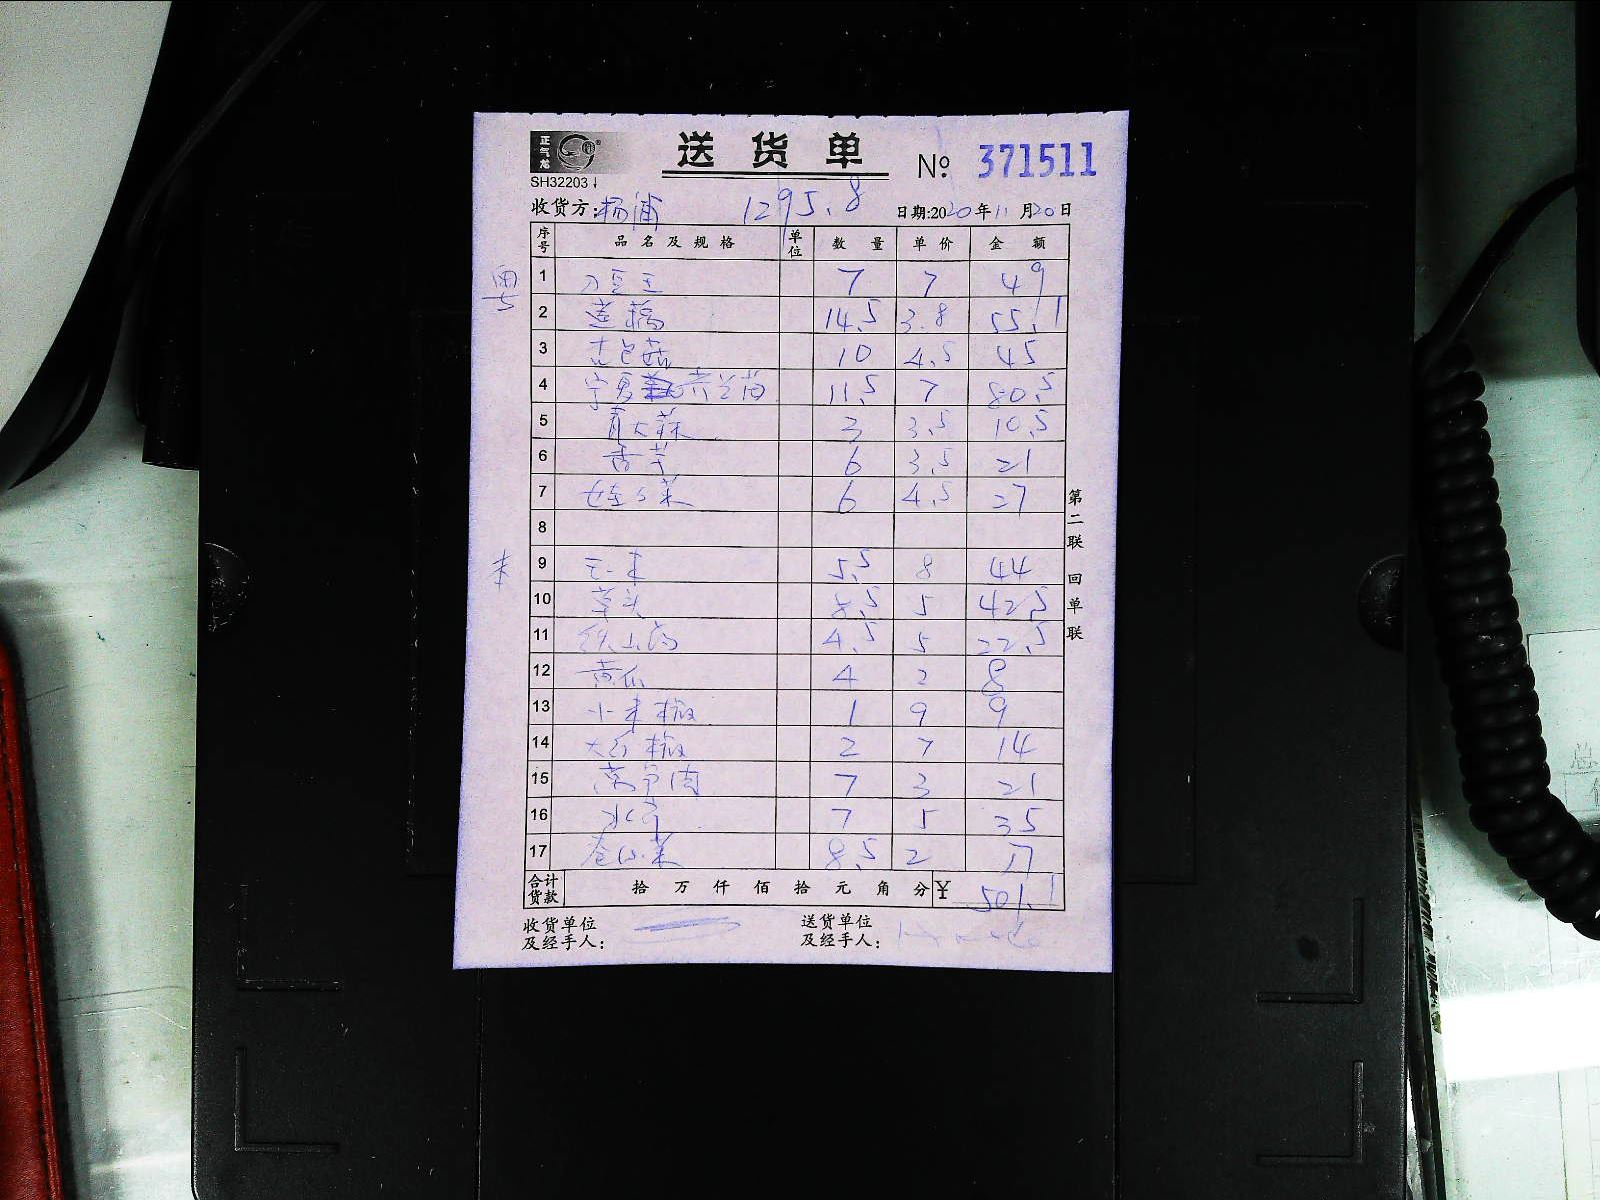 正气龙
送货单 № 371511
SH32203
收货方:杨浦 1295.8 日期:2020年11月20日
序号 品名及规格 单位 数量 单价 金额
1 刀豆王 7 7 49
2 蓬蒿 14.5 3.8 55.1
3 杏包菇 10 4.5 45
4 宁夏菜苔 11.5 7 80.5
5 青大蒜 3 3.5 10.5
6 香芹 6 3.5 21
7 娃娃菜 6 4.5 27
8
9 玉米 5.5 8 44
10 草头 8.5 5 42.5
11 铁山药 4.5 5 22.5
12 黄瓜 4 2 8
13 小米椒 1 9 9
14 大红椒 2 7 14
15 7 3 21
16 水芹 7 5 35
17 卷心菜 8.5 2 17
合计货款 拾 万 仟 佰 拾 元 角 分 ¥ 501.1
收货单位及经手人: 送货单位及经手人:
第二联 回单联